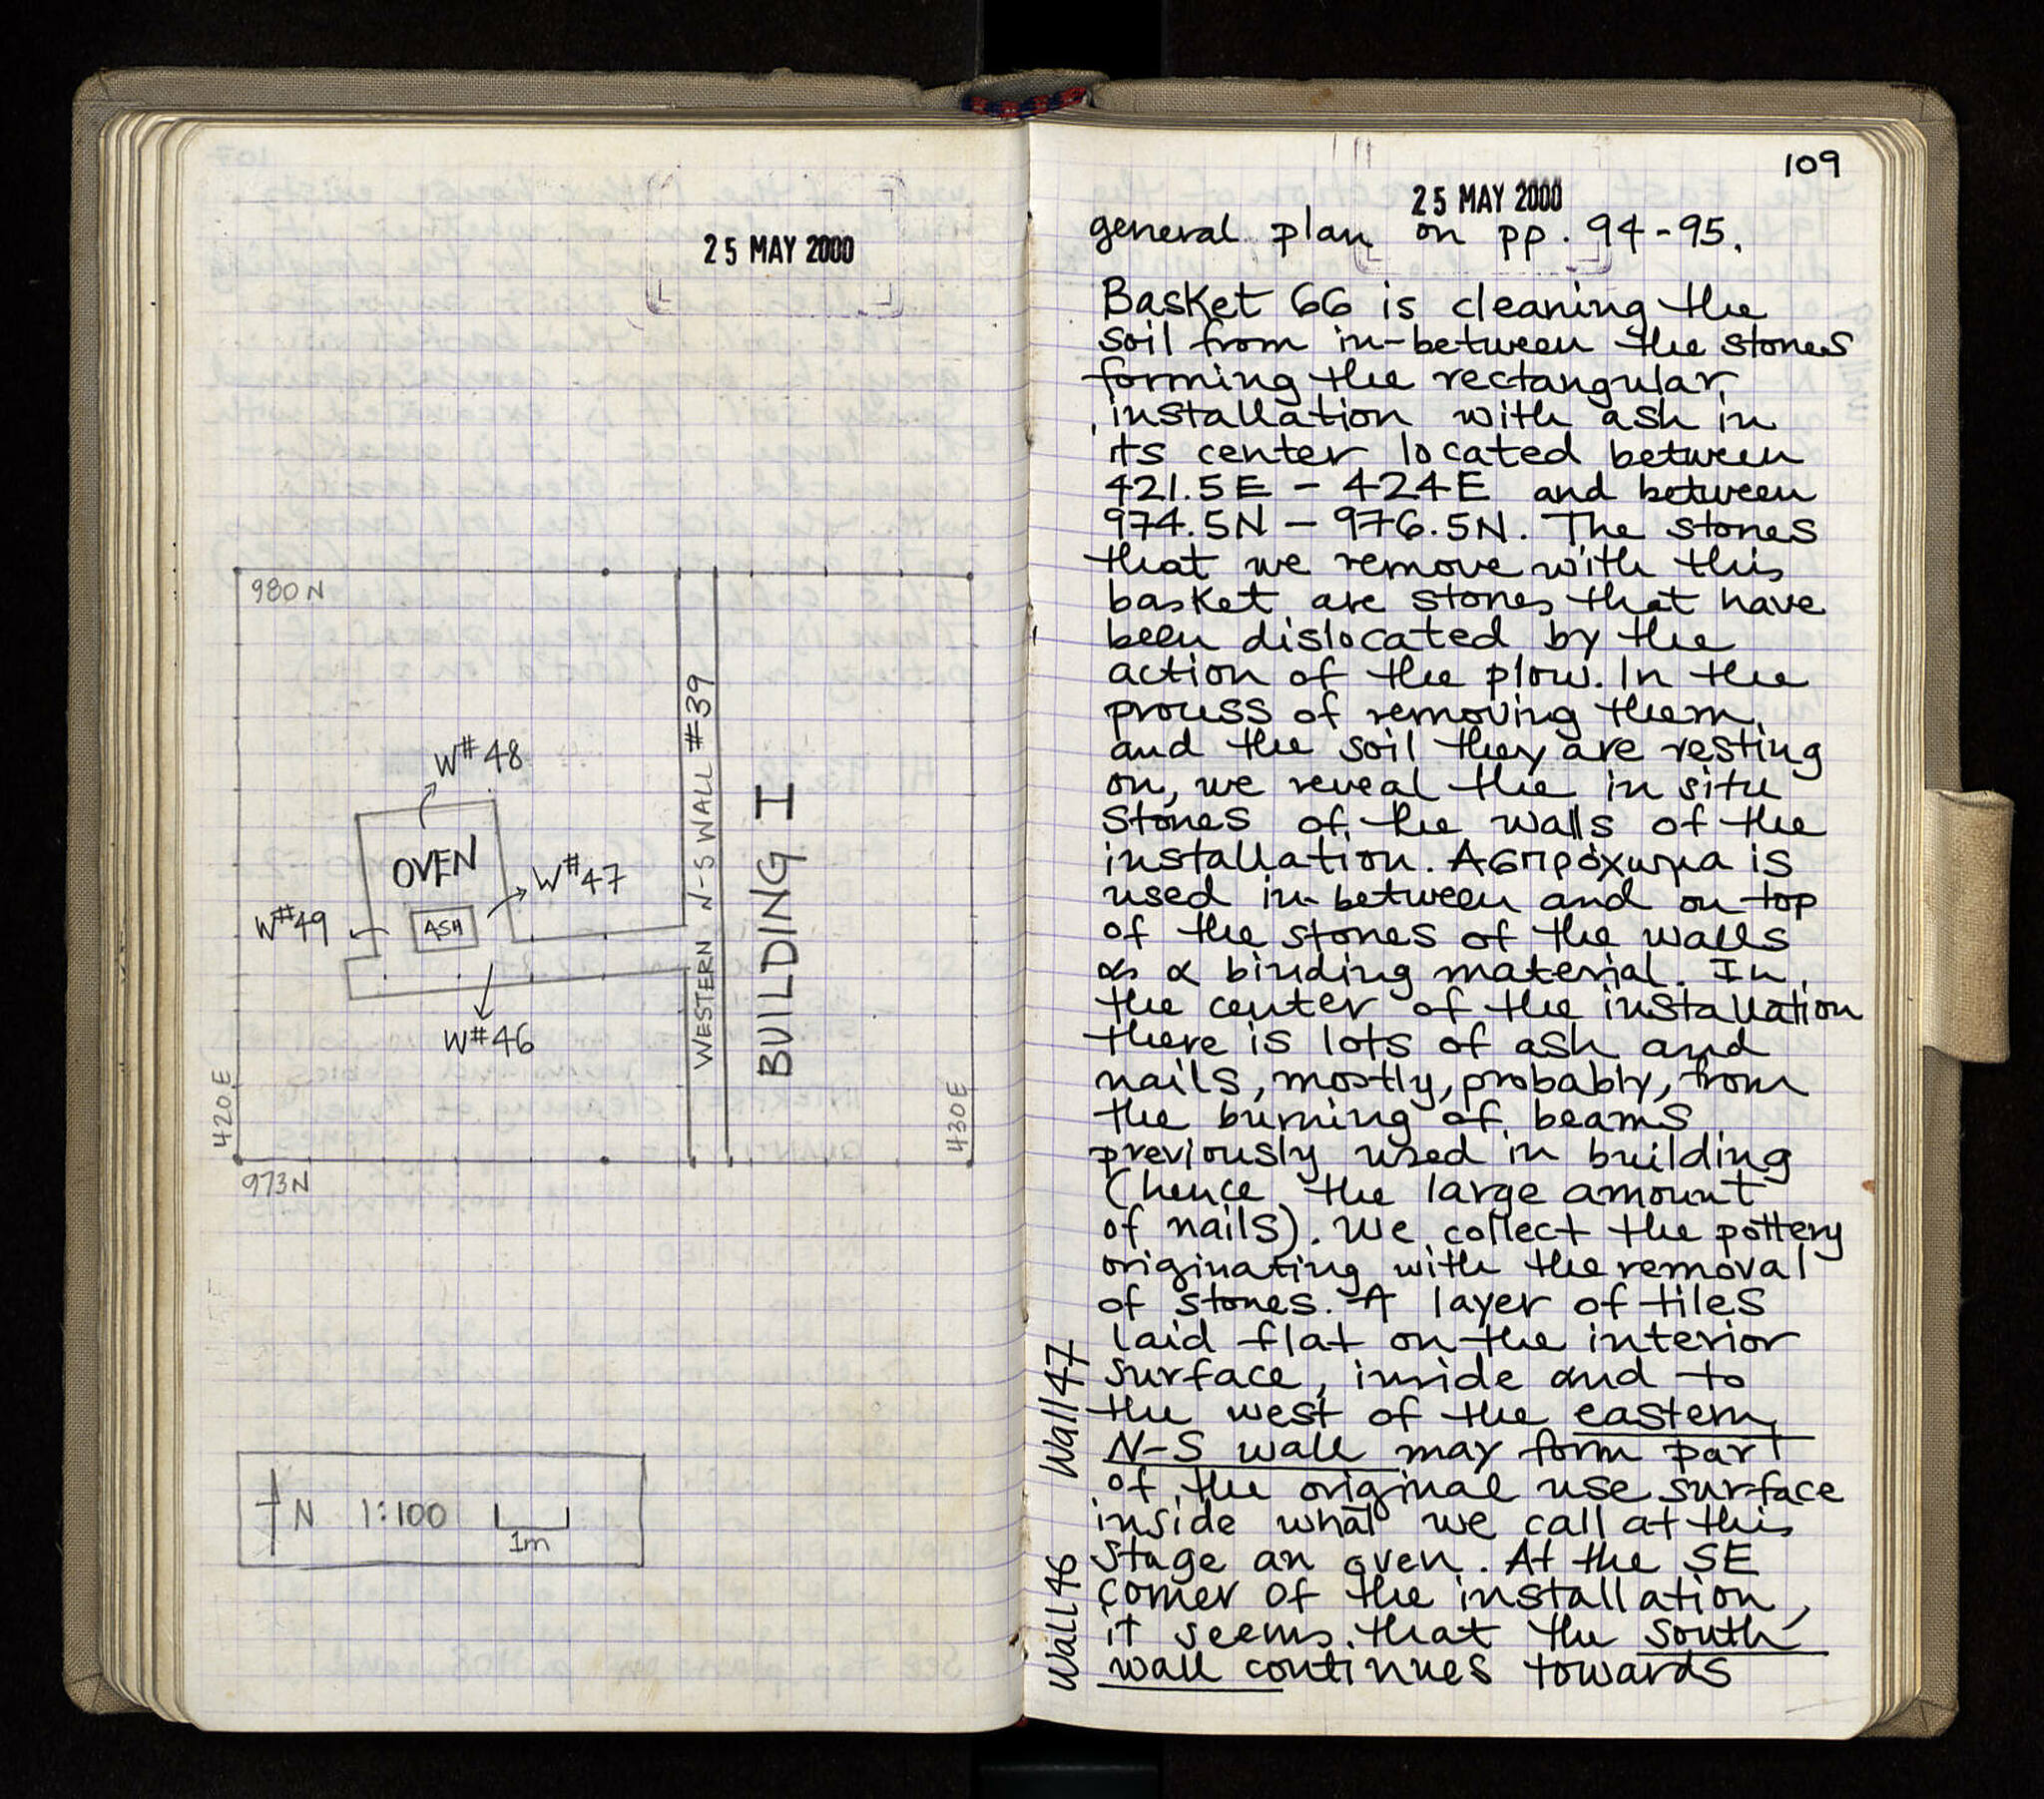 25 MAY 2000
980 N
W#48
OVEN
W#47
W#49
ASH
W#46
WESTERN N-S WALL #39
BUILDING I
420E
430E
973N
N 1:100
1m
109
25 MAY 2000
general plan on pp. 94-95.
Basket 66 is cleaning the
soil from in-between the stones
forming the rectangular
installation with ash in
its center located between
421.5E - 424E and between
974.5N - 976.5N. The stones
that we remove with this
basket are stones that have
been dislocated by the
action of the plow. In the
process of removing them,
and the soil they are resting
on, we reveal the in situ
stones of the walls of the
installation. Ασπρόχωμα is
used in-between and on top
of the stones of the walls
as a binding material. In
the center of the installation
there is lots of ash and
nails, mostly, probably, from
the burning of beams
previously used in building
(hence the large amount
of nails). We collect the pottery
originating with the removal
of stones. A layer of tiles
laid flat on the interior
surface, inside and to
the west of the eastern
N-S wall may form part
of the original use surface
inside what we call at this
stage an oven. At the SE
corner of the installation,
it seems that the south
wall continues towards
Wall 47
Wall 46